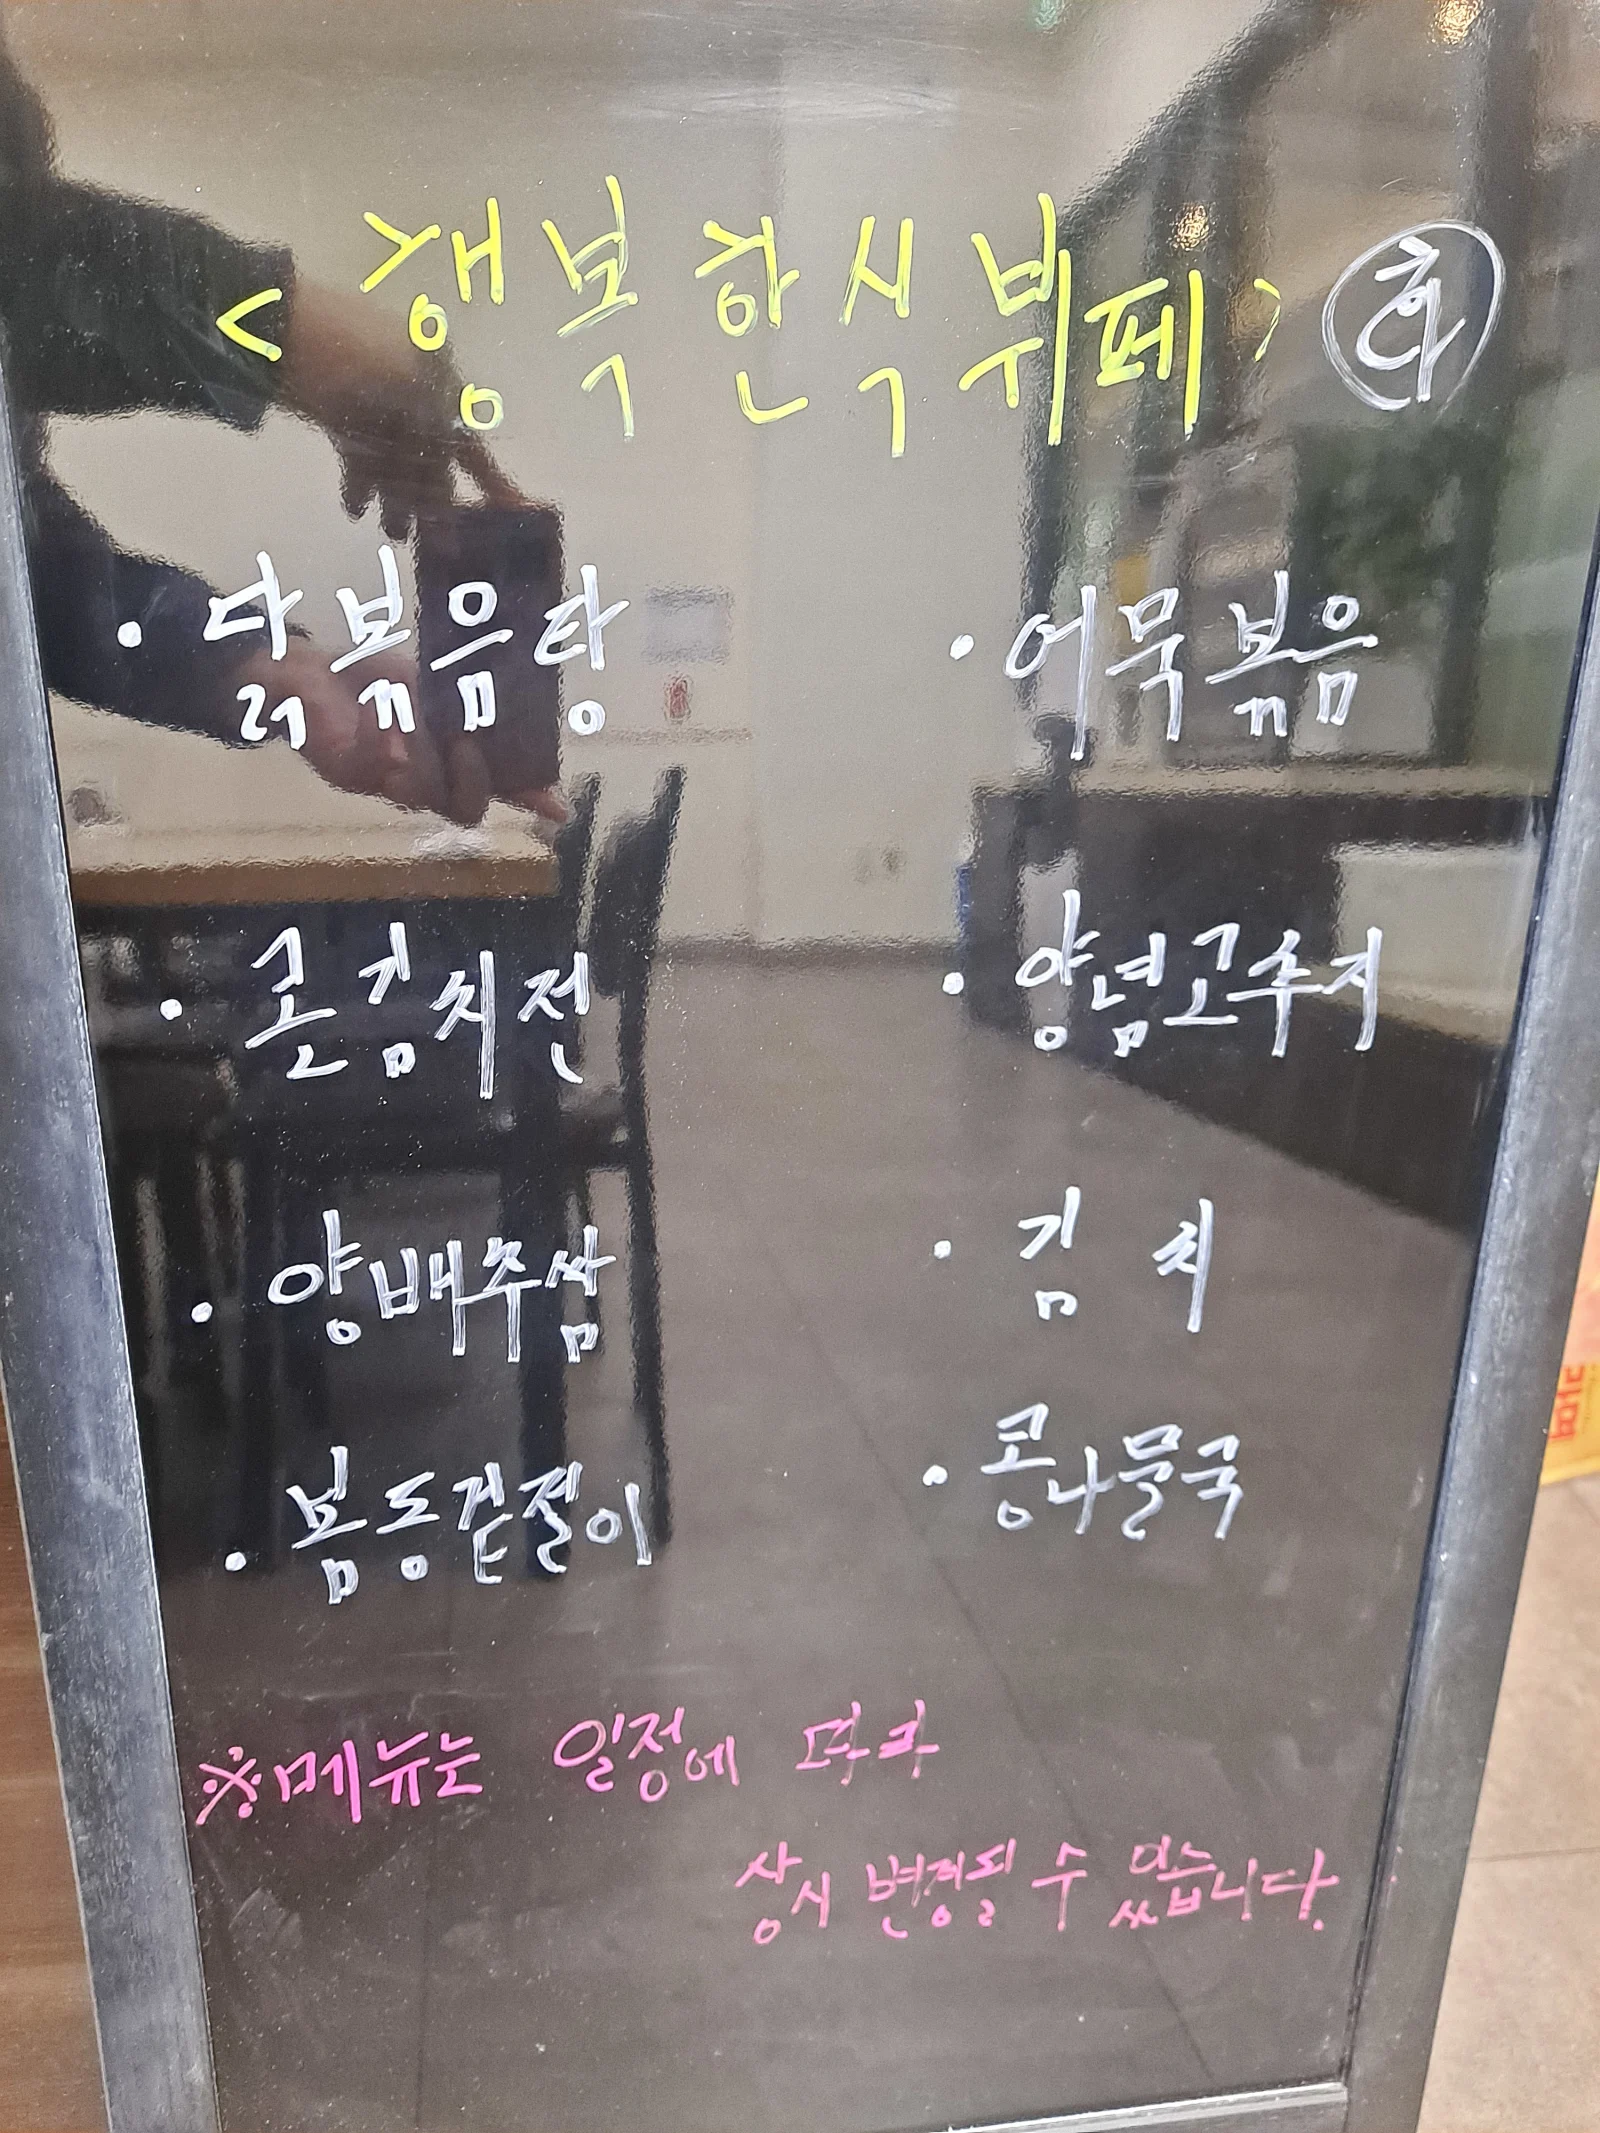 <행복한식뷔페> 화
· 닭볶음탕
· 어묵볶음
· 콘김치전
· 양념고추지
· 양배추쌈
· 김치
· 봄동겉절이
· 콩나물국
※메뉴는 일정에 따라
상시 변경될 수 있습니다.